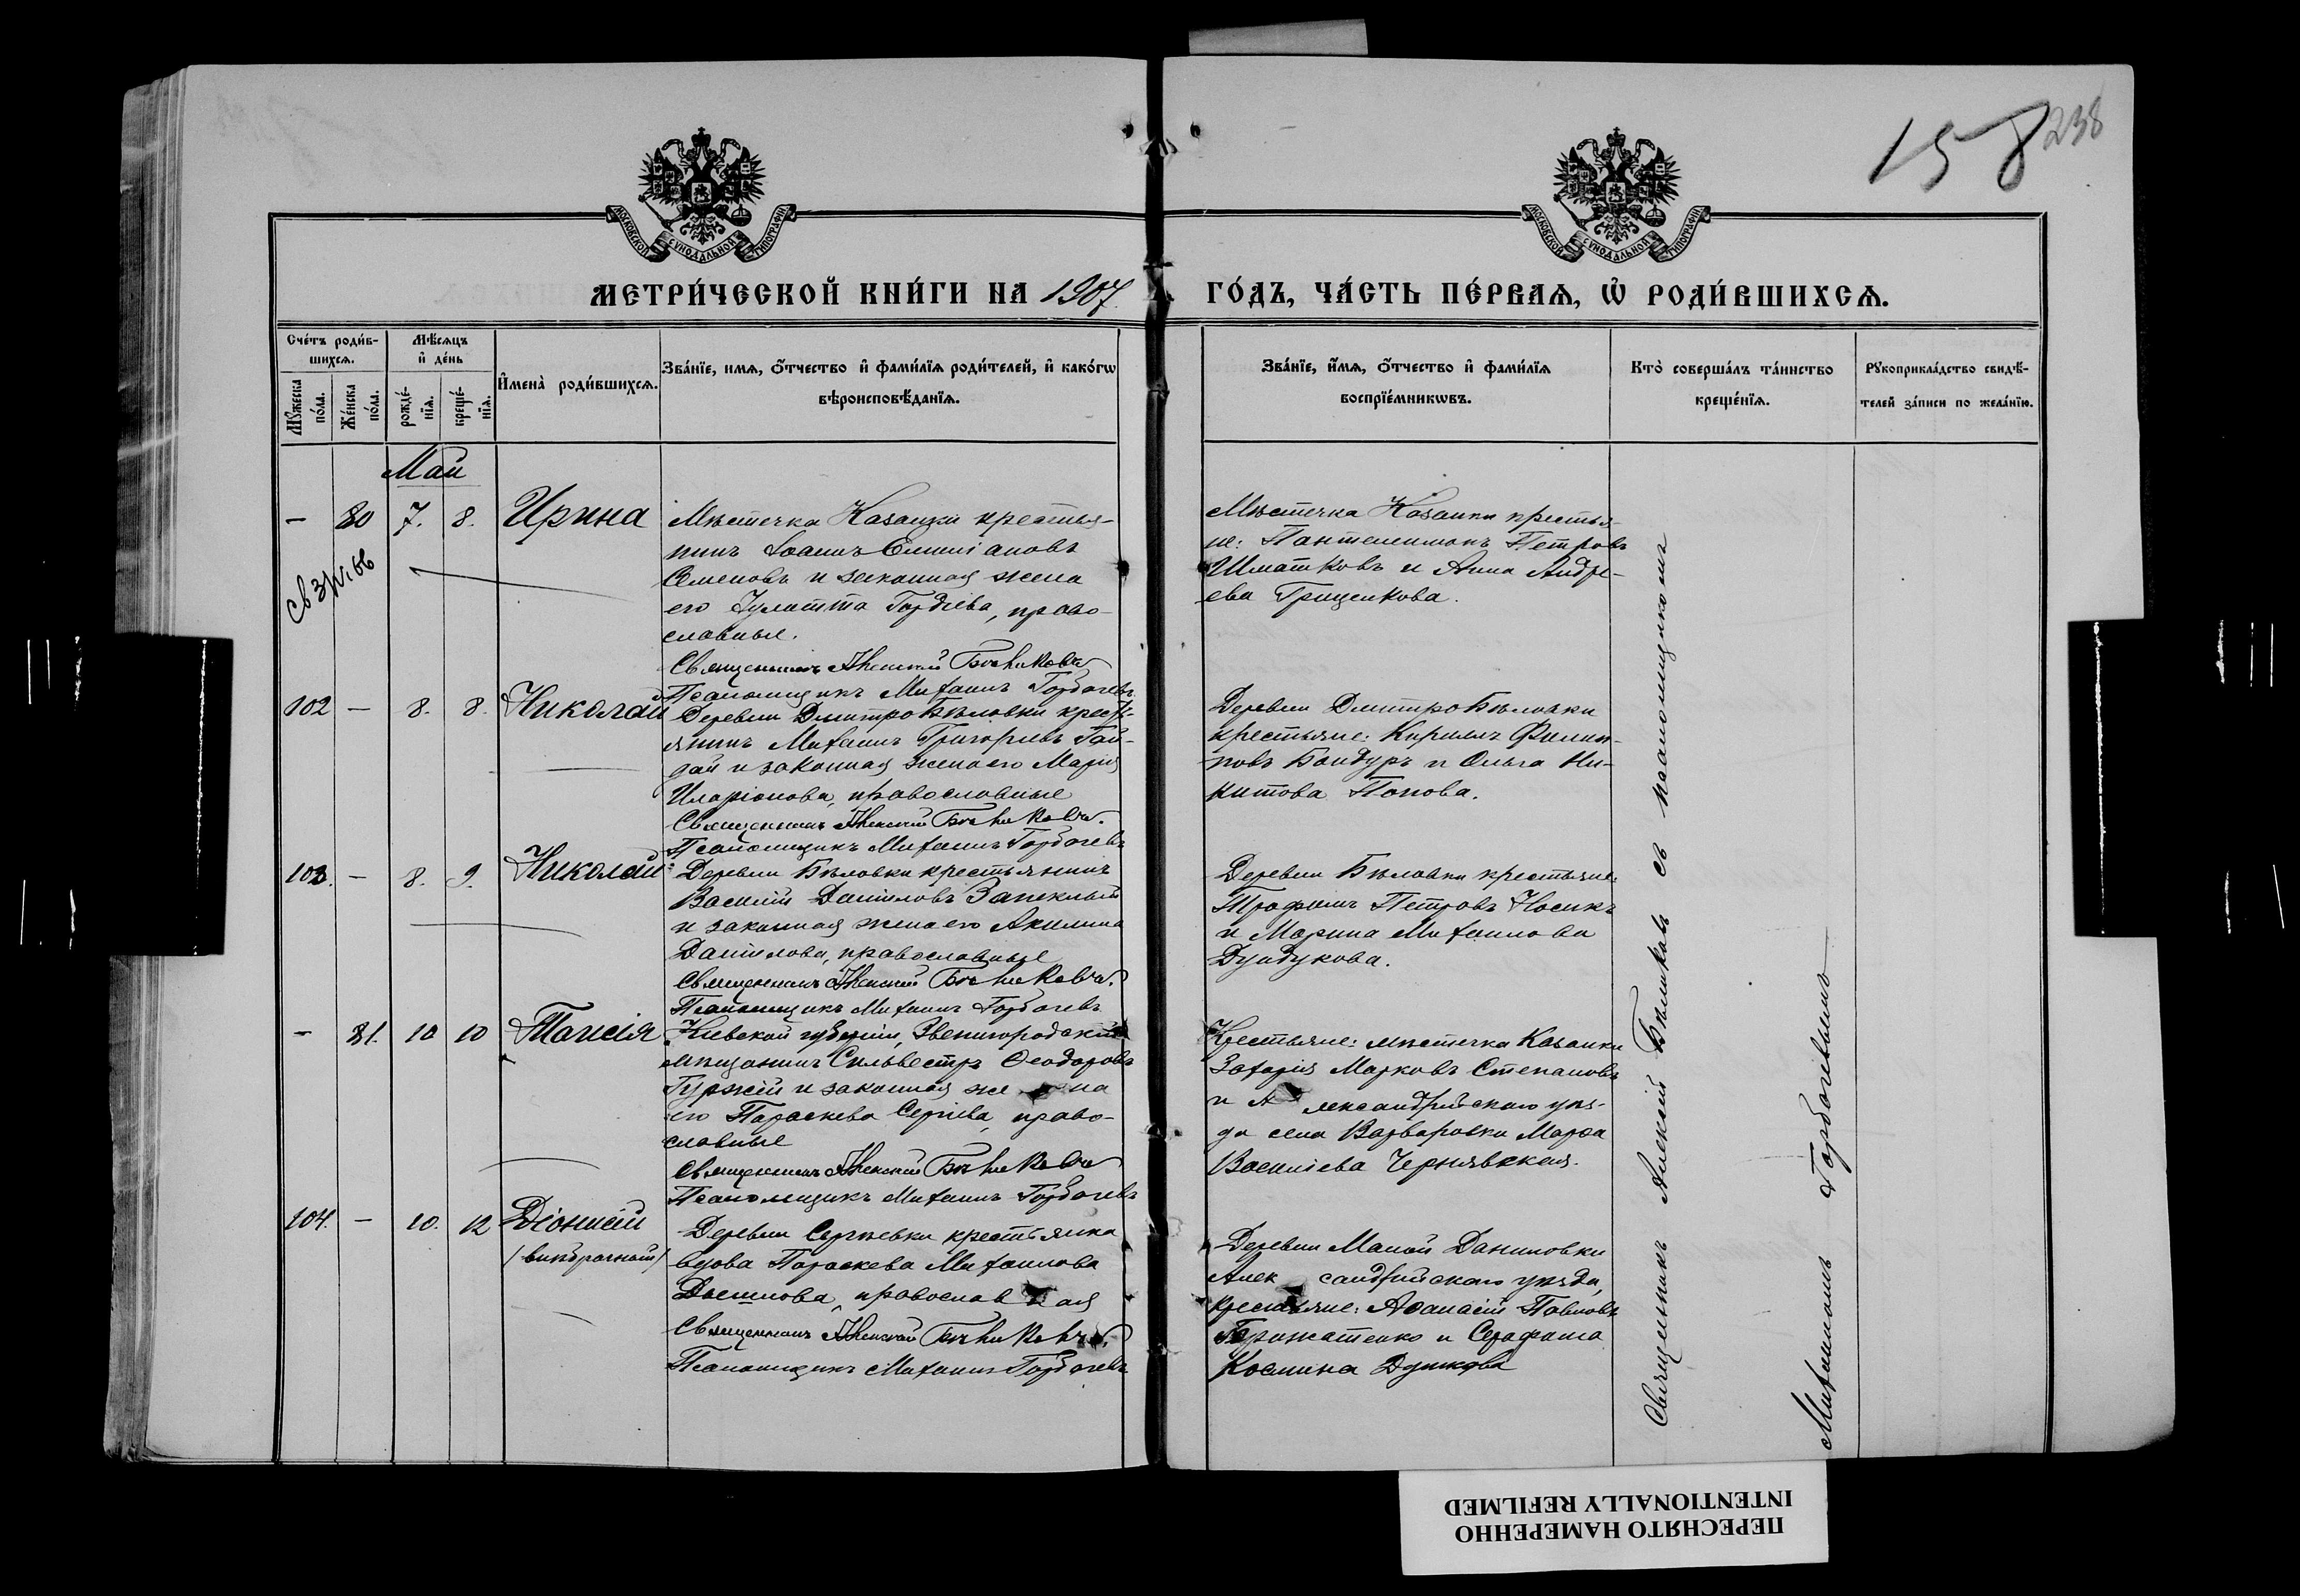 158
238
МОСКОВСКОЙ СУНОДАЛЬНОЙ ТИПОГРАФІИ
МОСКОВСКОЙ СУНОДАЛЬНОЙ ТИПОГРАФІИ
МЕТРИ́ЧЕСКОЙ КНИ́ГИ НА 1907. ГО́ДЪ, ЧА́СТЬ ПЕ́РВАЯ, Ѡ РОДИ́ВШИХСЯ.
Сче́тъ роди́в-
шихся.
Мѣ́сяцъ
и де́нь
Имена̀ роди́вшихся.
Зва́нїе, имя, о́тчество и фами́лїя роди́телей, и како́гѡ
вѣроисповѣ́данїя.
Зва́нїе, и́мя, о́тчество и фами́лїя
воспрїе́мникѡвъ.
Кто̀ соверша́лъ та́инство
креще́нїя.
Рꙋкоприкла́дство свидѣ́-
телей за́писи по жела́нїю.
Мꙋ́жеска
по́ла.
Же́нска
по́ла.
рожде́-
нїя.
креще́-
нїя.
Май
- 80 7. 8. Ирина
Мѣстечка Казанки крестья-
нинъ Іоаннъ Емиліановъ
Семеновъ и законная жена
его Іулитта Гордіева, право-
славные.
Священникъ Алексій Бѣликовъ
Псаломщикъ Михаилъ Горбачевъ
Мѣстечка Казанки крестья-
не: Пантелеимонъ Петровъ
Шматковъ и Анна Андре-
ева Гриценкова.
102 - 8. 8. Николай
Деревни ДмитроБѣловки кресть-
янинъ Михаилъ Григорьевъ Гай-
дай и законная жена его Марія
Иларіонова, православные
Священникъ Алексій Бѣликовъ.
Псаломщикъ Михаилъ Горбачевъ
Деревни ДмитроБѣловки
крестьяне: Кириллъ Филип-
повъ Бондуръ и Ольга Ни-
китова Попова.
103. - 8. 9. Николай
Деревни Бѣловки крестьянинъ
Василій Даніиловъ Запеклый
и законная жена его Акилина
Даніилова, православные
Священникъ Алексій Бѣликовъ.
Псаломщикъ Михаилъ Горбачевъ
Деревни Бѣловки крестьяне:
Трофимъ Петровъ Носикъ
и Марина Михаилова
Дундукова.
- 81. 10 10 Таисія
Кіевской губерніи, Звенигородскій
мѣщанинъ Сильвестръ Ѳеодоровъ
Гуржій и законная жена
его Параскева Сергіева, право-
славные
Священникъ Алексій Бѣликовъ
Псаломщикъ Михаилъ Горбачевъ
Крестьяне: мѣстечка Казанки
Захарія Марковъ Степановъ
и Александрійскаго уѣз-
да села Варваровки Марѳа
Василіева Чернявская.
104. - 10. 12 Діонисій
/внѣбрачный/
Деревни Сергѣевки крестьянка
вдова Параскева Михаилова
православная
Священникъ Алексій Бѣликовъ.
Псаломщикъ Михаилъ Горбачевъ
Деревни Малой Даниловки
Александрійскаго уѣзда,
крестьяне: Аѳанасій Павловъ
и Серафима
Космина
Священникъ Алексій Бѣликовъ съ псаломщикомъ
Михаиломъ Горбачевымъ
ПЕРЕСНЯТО НАМЕРЕННО
INTENTIONALLY REFILMED